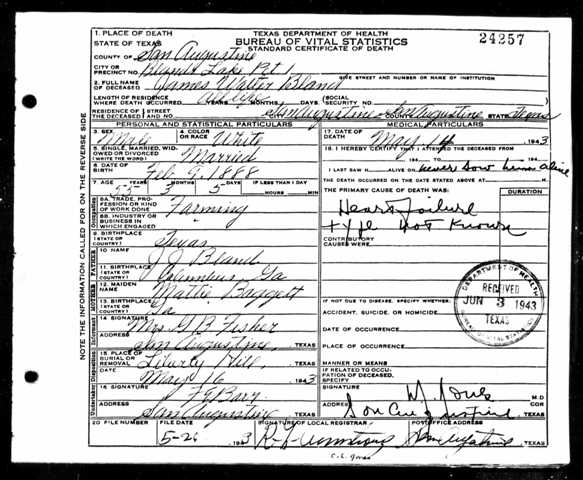 TEXAS DEPARTMENT OF HEALTH
BUREAU OF VITAL STATISTICS
STANDARD CERTIFICATE OF DEATH
24257
1. PLACE OF DEATH
STATE OF TEXAS
COUNTY OF San Augustine
CITY OR PRECINCT NO. Bland Lake Rt 1
GIVE STREET AND NUMBER OR NAME OF INSTITUTION
2. FULL NAME OF DECEASED James Walter Bland
LENGTH OF RESIDENCE WHERE DEATH OCCURRED YEARS MONTHS DAYS
SOCIAL SECURITY NO.
RESIDENCE OF THE DECEASED STREET AND NO. San Augustine COUNTY San Augustine STATE Texas
PERSONAL AND STATISTICAL PARTICULARS
MEDICAL PARTICULARS
3. SEX Male
4. COLOR OR RACE White
5. SINGLE, MARRIED, WIDOWED OR DIVORCED (WRITE THE WORD) Married
6. DATE OF BIRTH Feb 9 1888
7. AGE YEARS MONTHS DAYS IF LESS THAN 1 DAY
55 3 5 HOURS MIN
8A. TRADE, PROFESSION OR KIND OF WORK DONE Farming
8B. INDUSTRY OR BUSINESS IN WHICH ENGAGED
9. BIRTHPLACE (STATE OR COUNTRY) Texas
FATHER
10 NAME J J Bland
11. BIRTHPLACE (STATE OR COUNTRY) Columbus Ga
MOTHER
12. MAIDEN NAME Mattie Baggett
13. BIRTHPLACE (STATE OR COUNTRY) Ga
Informant
14. SIGNATURE Mrs. G B Fisher
ADDRESS San Augustine, TEXAS
15. PLACE OF BURIAL OR REMOVAL Liberty Hill, TEXAS
DATE May 16 1943
16. SIGNATURE
ADDRESS San Augustine TEXAS
17. DATE OF DEATH May 1943
18. I HEREBY CERTIFY THAT I ATTENDED THE DECEASED FROM
194 TO 194
I LAST SAW H ALIVE ON never saw him alive
THE DEATH OCCURRED ON THE DATE STATED ABOVE AT M.
THE PRIMARY CAUSE OF DEATH WAS:
DURATION
Heart failure
type not known
CONTRIBUTORY CAUSES WERE:
IF NOT DUE TO DISEASE, SPECIFY WHETHER:
ACCIDENT, SUICIDE, OR HOMICIDE
DATE OF OCCURRENCE
PLACE OF OCCURRENCE
MANNER OR MEANS
IF RELATED TO OCCUPATION OF DECEASED, SPECIFY
SIGNATURE M.D. COR
ADDRESS San Augustine TEXAS
20 FILE NUMBER
FILE DATE 5-26 1943
SIGNATURE OF LOCAL REGISTRAR
POSTOFFICE ADDRESS San Augustine TEXAS
DEPARTMENT OF HEALTH
RECEIVED
JUN 3 1943
TEXAS
BUREAU OF VITAL STATISTICS
NOTE THE INFORMATION CALLED FOR ON THE REVERSE SIDE